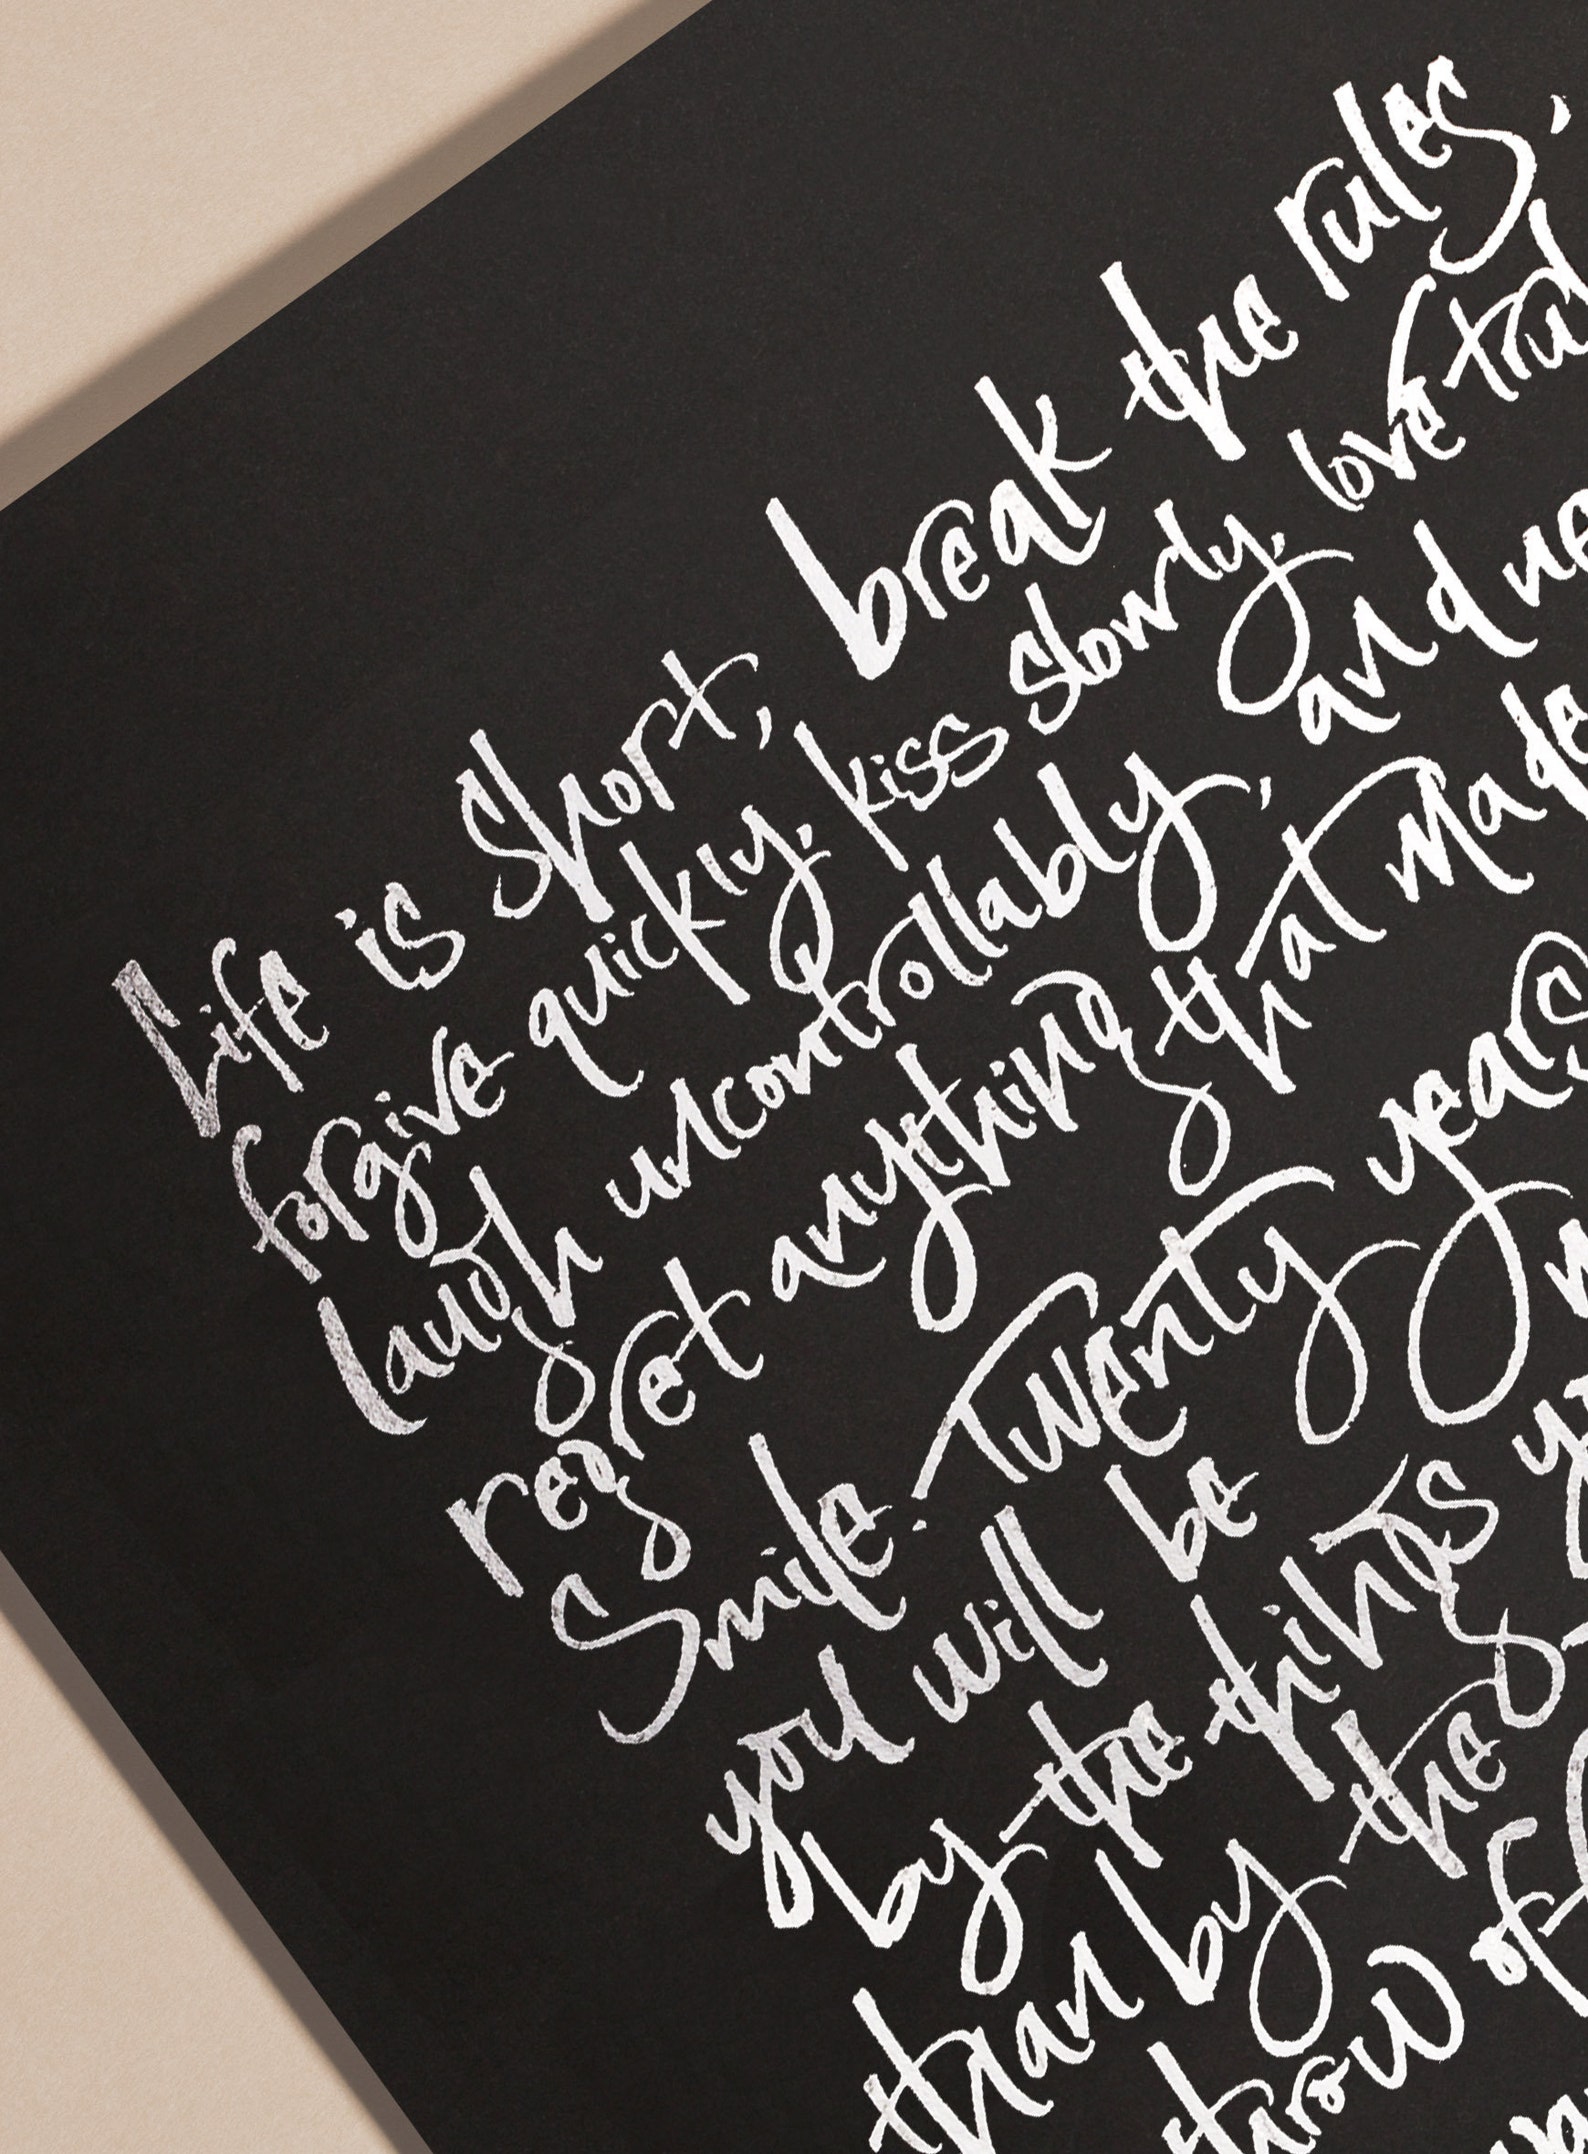 Life is short, break the rules,
forgive quickly, kiss slowly, love tru
laugh uncontrollably, and ne
regret anything that made
Smile. Twenty years
you will be
by the things y
than by the
throw of